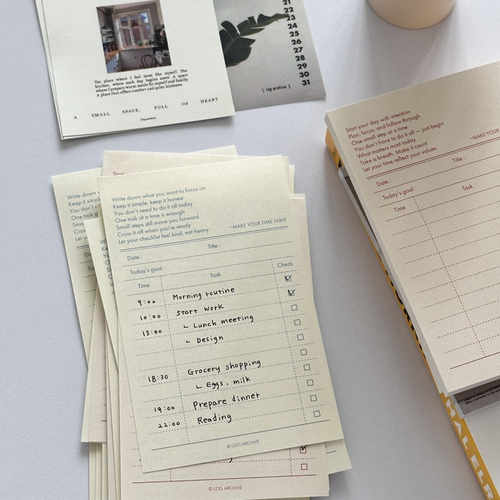 The place where I feel most like myself. The
A SMALL SPACE, FULL OF HEART
21
22
23
24
25
26
27
28
29
30
31
Write down what you want to focus on
Keep it simple, keep it honest
You don't need to do it all today
One task at a time is enough
Small steps still move you forward
Cross it off when you're ready
Let your checklist feel kind, not heavy
*MAKE YOUR TIME HAVE
Date :
Title :
Today's goal
Time
Task
Check
9:00 Morning routine
10:00 Start work
13:00 ↳ Lunch meeting
↳ Design
18:30 Grocery shopping
↳ Eggs, milk
19:00 Prepare dinner
22:00 Reading
© LOG ARCHIVE
© LOG ARCHIVE
Start your day with intention
Plan, focus, and follow through
One small step at a time
You don't have to do it all — just begin
What matters most today
Take a breath. Make it count
Let your time reflect your values
*MAKE YO
Date :
Title :
Today's goal
Time
Task